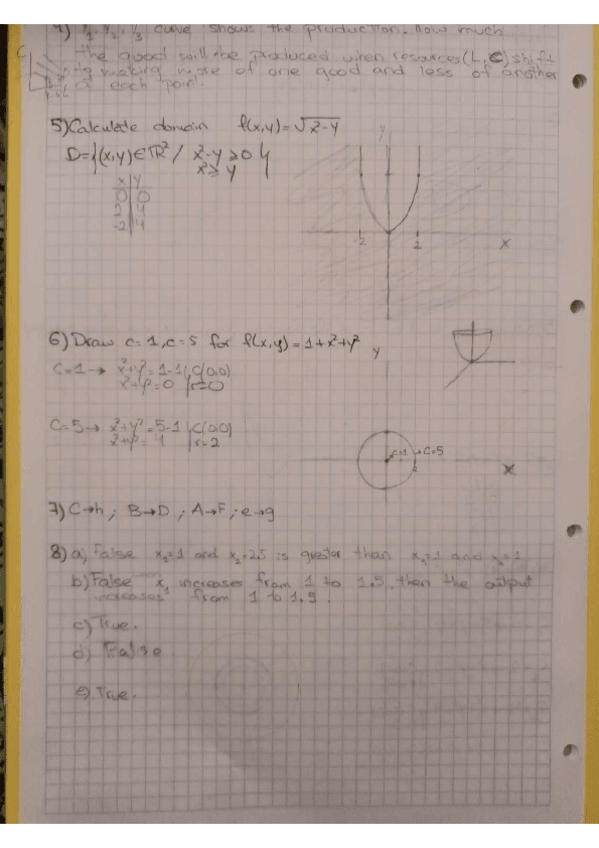 4) Y₁, Y₂, Y₃ curve shows the production. How much
the good will be produced when resources (L, C) shift
to making more of one good and less of another
a each point.
C
5) Calculate domain f(x,y)=√x²-y
D={(x,y)∈ℝ² / x²-y≥0}
x²≥y
x y
0 0
2 4
-2 4
y
-2 2 x
6) Draw c=1, c=5 for f(x,y)=1+x²+y²
y
C=1→ x²+y²=1-1 C(0,0)
x²+y²=0 r=0
C=5→ x²+y²=5-1 C(0,0)
x²+y²=4 r=2
c=1 →C=5
2
x
7) C→h ; B→D ; A→F ; e→g
8) a) False x₁=1 and x₂=2.5 is greater than x₁=1 and x₂=1
b) False x₁ increases from 1 to 1.5, then the output
increases from 1 to 1.5.
c) True.
d) False
e) True.